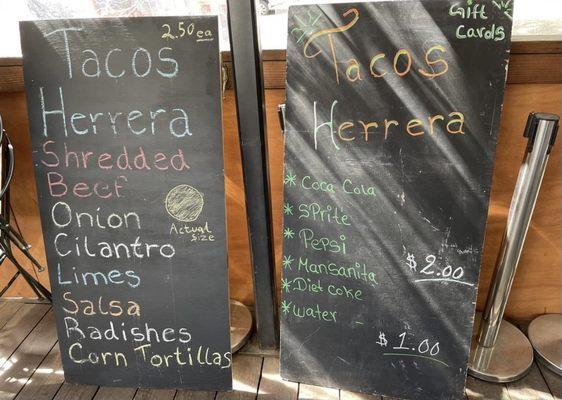 2.50 ea
Tacos
Herrera
Shredded
Beef
Onion
Cilantro
Actual
size
Limes
Salsa
Radishes
Corn Tortillas
Gift
Cards
Tacos
Herrera
* Coca Cola
* SPrite
* Pepsi
* Mansanita
* Diet coke
$2.00
* water -
$1.00